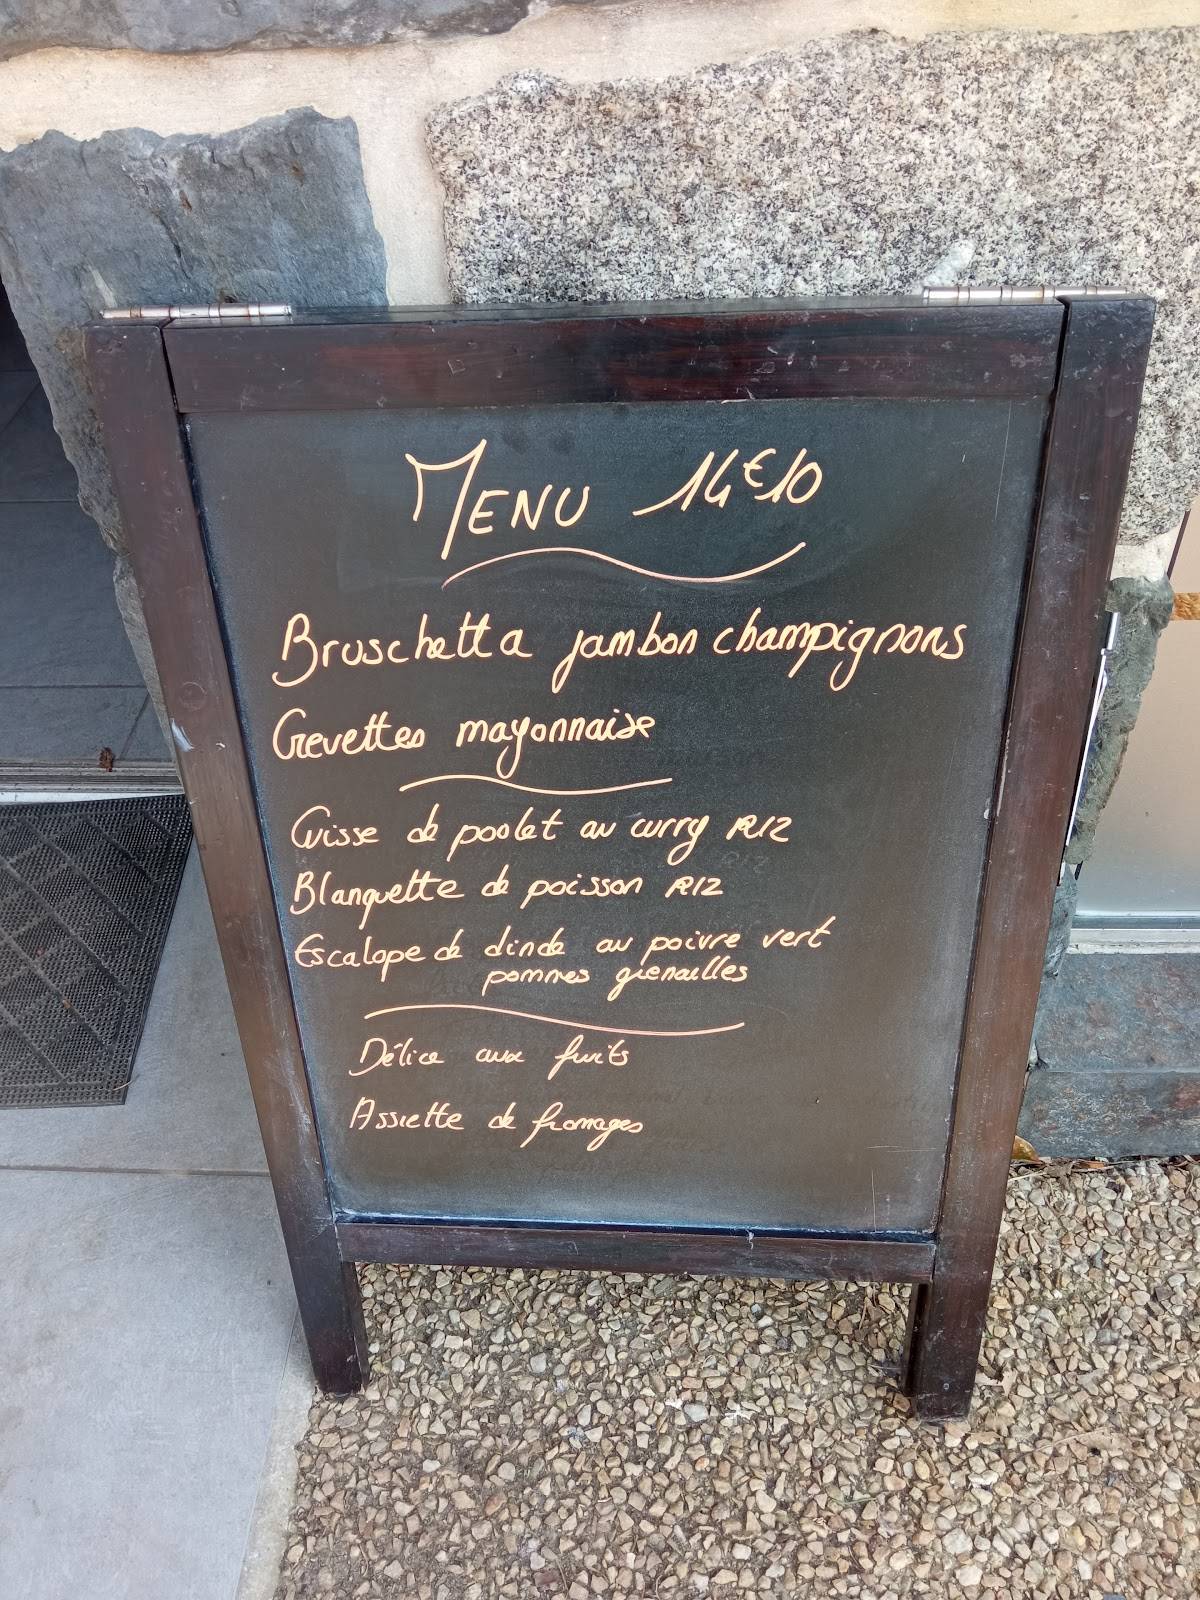 MENU 14€10
Bruschetta jambon champignons
Crevettes mayonnaise
Cuisse de poulet au curry RIZ
Blanquette de poisson RIZ
Escalope de dinde au poivre vert
pommes grenailles
Délice aux fruits
Assiette de fromages